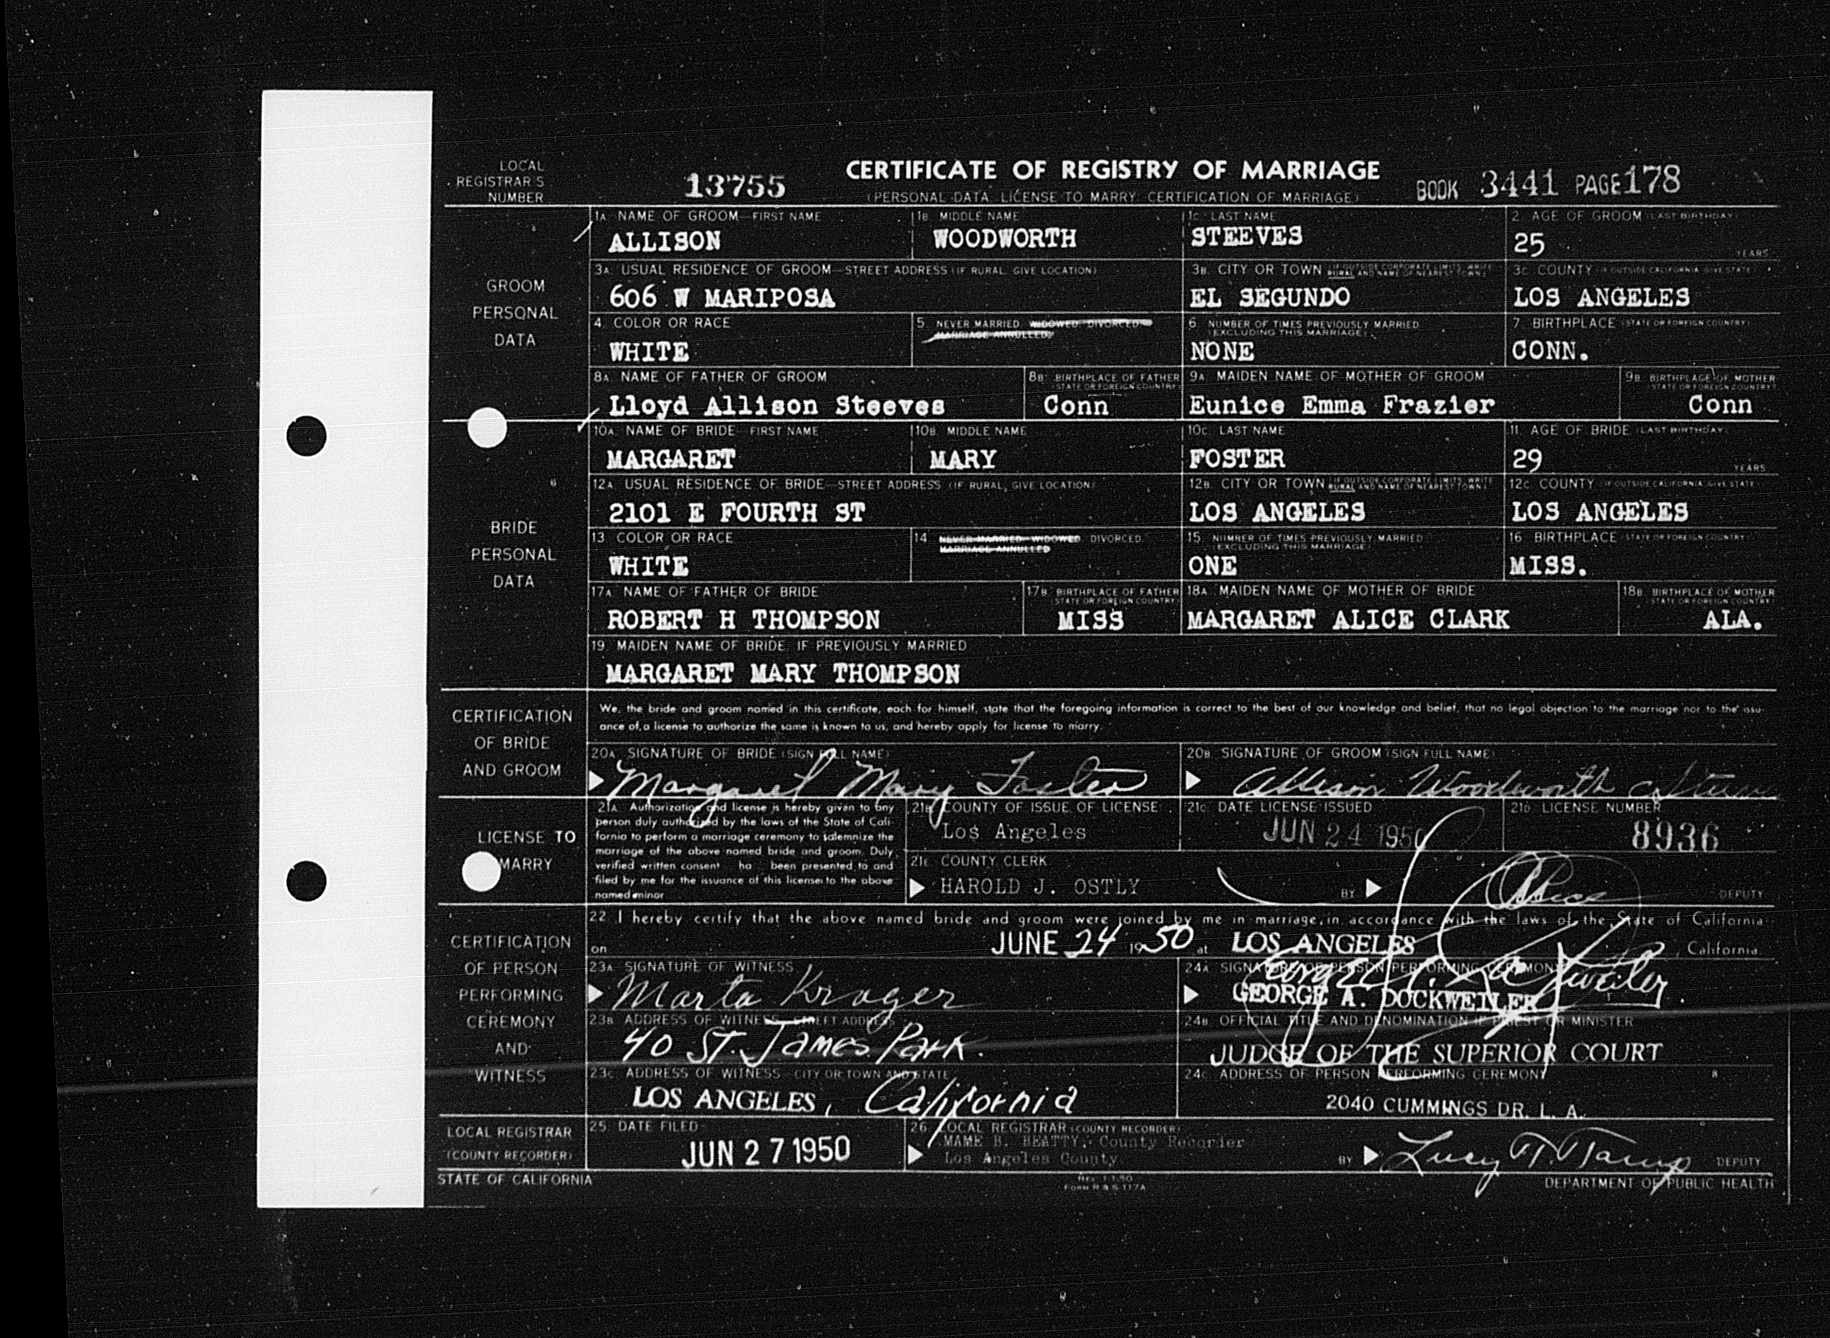 LOCAL REGISTRAR'S NUMBER 13755 CERTIFICATE OF REGISTRY OF MARRIAGE BOOK 3441 PAGE 178
(PERSONAL DATA LICENSE TO MARRY CERTIFICATION OF MARRIAGE)
GROOM PERSONAL DATA
1A NAME OF GROOM—FIRST NAME 1B MIDDLE NAME 1C LAST NAME 2. AGE OF GROOM (LAST BIRTHDAY)
ALLISON WOODWORTH STEEVES 25 YEARS
3A. USUAL RESIDENCE OF GROOM—STREET ADDRESS (IF RURAL, GIVE LOCATION) 3B. CITY OR TOWN (IF OUTSIDE CORPORATE LIMITS, WRITE RURAL AND NAME OF NEAREST TOWN) 3C COUNTY (IF OUTSIDE CALIFORNIA GIVE STATE)
606 W MARIPOSA EL SEGUNDO LOS ANGELES
4. COLOR OR RACE 5. NEVER MARRIED WIDOWED DIVORCED MARRIAGE ANNULLED 6. NUMBER OF TIMES PREVIOUSLY MARRIED (EXCLUDING THIS MARRIAGE) 7. BIRTHPLACE (STATE OR FOREIGN COUNTRY)
WHITE NONE CONN.
8A. NAME OF FATHER OF GROOM 8B. BIRTHPLACE OF FATHER (STATE OR FOREIGN COUNTRY) 9A. MAIDEN NAME OF MOTHER OF GROOM 9B. BIRTHPLACE OF MOTHER (STATE OR FOREIGN COUNTRY)
Lloyd Allison Steeves Conn Eunice Emma Frazier Conn
BRIDE PERSONAL DATA
10A. NAME OF BRIDE—FIRST NAME 10B. MIDDLE NAME 10C. LAST NAME 11. AGE OF BRIDE (LAST BIRTHDAY)
MARGARET MARY FOSTER 29 YEARS
12A. USUAL RESIDENCE OF BRIDE—STREET ADDRESS (IF RURAL, GIVE LOCATION) 12B. CITY OR TOWN (IF OUTSIDE CORPORATE LIMITS, WRITE RURAL AND NAME OF NEAREST TOWN) 12C. COUNTY (IF OUTSIDE CALIFORNIA GIVE STATE)
2101 E FOURTH ST LOS ANGELES LOS ANGELES
13 COLOR OR RACE 14 NEVER MARRIED WIDOWED DIVORCED. MARRIAGE ANNULLED 15. NUMBER OF TIMES PREVIOUSLY MARRIED (EXCLUDING THIS MARRIAGE) 16 BIRTHPLACE (STATE OR FOREIGN COUNTRY)
WHITE ONE MISS.
17A. NAME OF FATHER OF BRIDE 17B. BIRTHPLACE OF FATHER (STATE OR FOREIGN COUNTRY) 18A. MAIDEN NAME OF MOTHER OF BRIDE 18B. BIRTHPLACE OF MOTHER (STATE OR FOREIGN COUNTRY)
ROBERT H THOMPSON MISS MARGARET ALICE CLARK ALA.
19. MAIDEN NAME OF BRIDE, IF PREVIOUSLY MARRIED
MARGARET MARY THOMPSON
CERTIFICATION OF BRIDE AND GROOM
We, the bride and groom named in this certificate, each for himself, state that the foregoing information is correct to the best of our knowledge and belief, that no legal objection to the marriage nor to the issu-
ance of a license to authorize the same is known to us, and hereby apply for license to marry.
20A. SIGNATURE OF BRIDE (SIGN FULL NAME) 20B. SIGNATURE OF GROOM (SIGN FULL NAME)
Margaret Mary Foster Allison Woodworth Steeves
LICENSE TO MARRY
21A Authorization and license is hereby given to any
person duly authorized by the laws of the State of Cali-
fornia to perform a marriage ceremony to solemnize the
marriage of the above named bride and groom. Duly
verified written consent ha been presented to and
filed by me for the issuance of this license to the above
named minor
21B COUNTY OF ISSUE OF LICENSE 21C. DATE LICENSE ISSUED 21D LICENSE NUMBER
Los Angeles JUN 24 1950 8936
21E. COUNTY CLERK
HAROLD J. OSTLY BY DEPUTY
CERTIFICATION OF PERSON PERFORMING CEREMONY AND WITNESS
22 I hereby certify that the above named bride and groom were joined by me in marriage, in accordance with the laws of the State of California
on JUNE 24 1950 at LOS ANGELES, California
23A SIGNATURE OF WITNESS 24A SIGNATURE OF PERSON PERFORMING CEREMONY
Marta Krager George A. Dockweiler
GEORGE A. DOCKWEILER
23B ADDRESS OF WITNESS—STREET ADDRESS 24B OFFICIAL TITLE AND DENOMINATION IF PRIEST OR MINISTER
40 St. James Park. JUDGE OF THE SUPERIOR COURT
23C ADDRESS OF WITNESS—CITY OR TOWN AND STATE 24C ADDRESS OF PERSON PERFORMING CEREMONY
LOS ANGELES, California 2040 CUMMINGS DR. L. A.
LOCAL REGISTRAR (COUNTY RECORDER)
25 DATE FILED 26. LOCAL REGISTRAR (COUNTY RECORDER)
JUN 27 1950 MAME B. BEATTY, County Recorder
Los Angeles County BY DEPUTY
STATE OF CALIFORNIA REV. 1-1-50 DEPARTMENT OF PUBLIC HEALTH
FORM R & S 117A